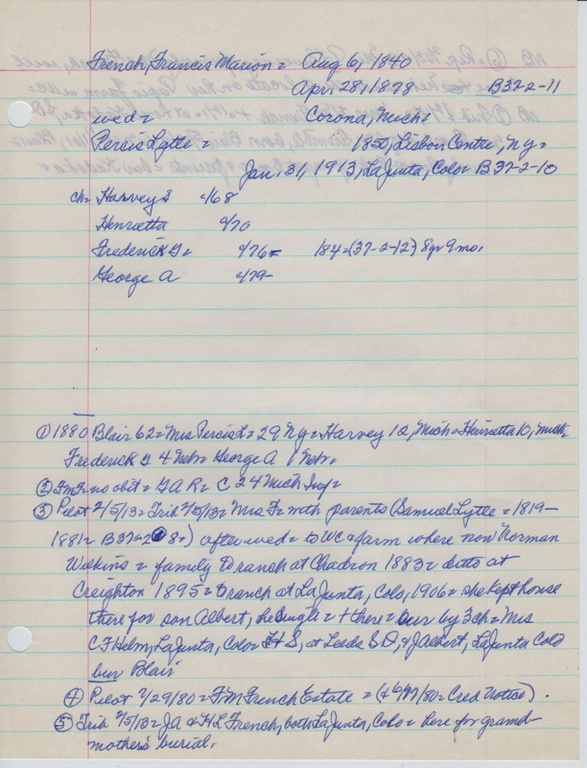 French, Francis Marion = Aug 6, 1840
Apr. 28, 1878 B37-2-11
wed = Corona, Mich =
Persis Lytle = 1850, Lisbon Centre, Ny =
Jan. 31, 1913, La Junta, Colo = B37-2-10
ch = Harvey S c/68
Henrietta c/70
Frederick G = c/76 = 184 = (37-2-12) 8yr 9mo.
George A c/79 -
① 1880 Blair 62 = Mrs Percis L = 29 Ny = Harvey 12, Mich = Henrietta 10, Mich,
Frederick G 4 Nebr = George A 1 Nebr =
② FmF = no obit = GAR = C 24 Mich Inf =
③ Pilot 2/5/13 = Trib 2/5/13 = Mrs F = with parents (Samuel Lytle = 1819 -
1881 = B37 = 2 8 =) after wed = to WC = farm where now Norman
Wilkins = family to ranch at Chadron 1883 = ditto at
Creighton 1895 = to ranch at La Junta, Colo, 1906 = she kept house
there for son Albert, he single = + there = sur by 3 ch = Mrs
C F Helm, La Junta, Colo = H S, at Leeds S D, & J Albert, La Junta Colo
bur Blair
④ Pilot 7/29/80 = FM French Estate = Cred Notice).
⑤ Trib 2/5/13 = JA & HL French, both La Junta, Colo = here for grand-
mother's burial.